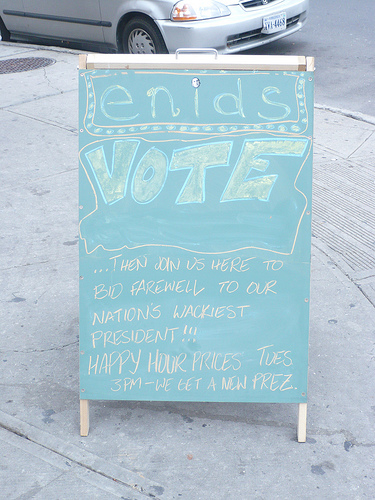 enids
VOTE
...THEN JOIN US HERE TO
BID FAREWELL TO OUR
NATION'S WACKIEST
PRESIDENT!!!
HAPPY HOUR PRICES - TUES
3PM - WE GET A NEW PREZ.